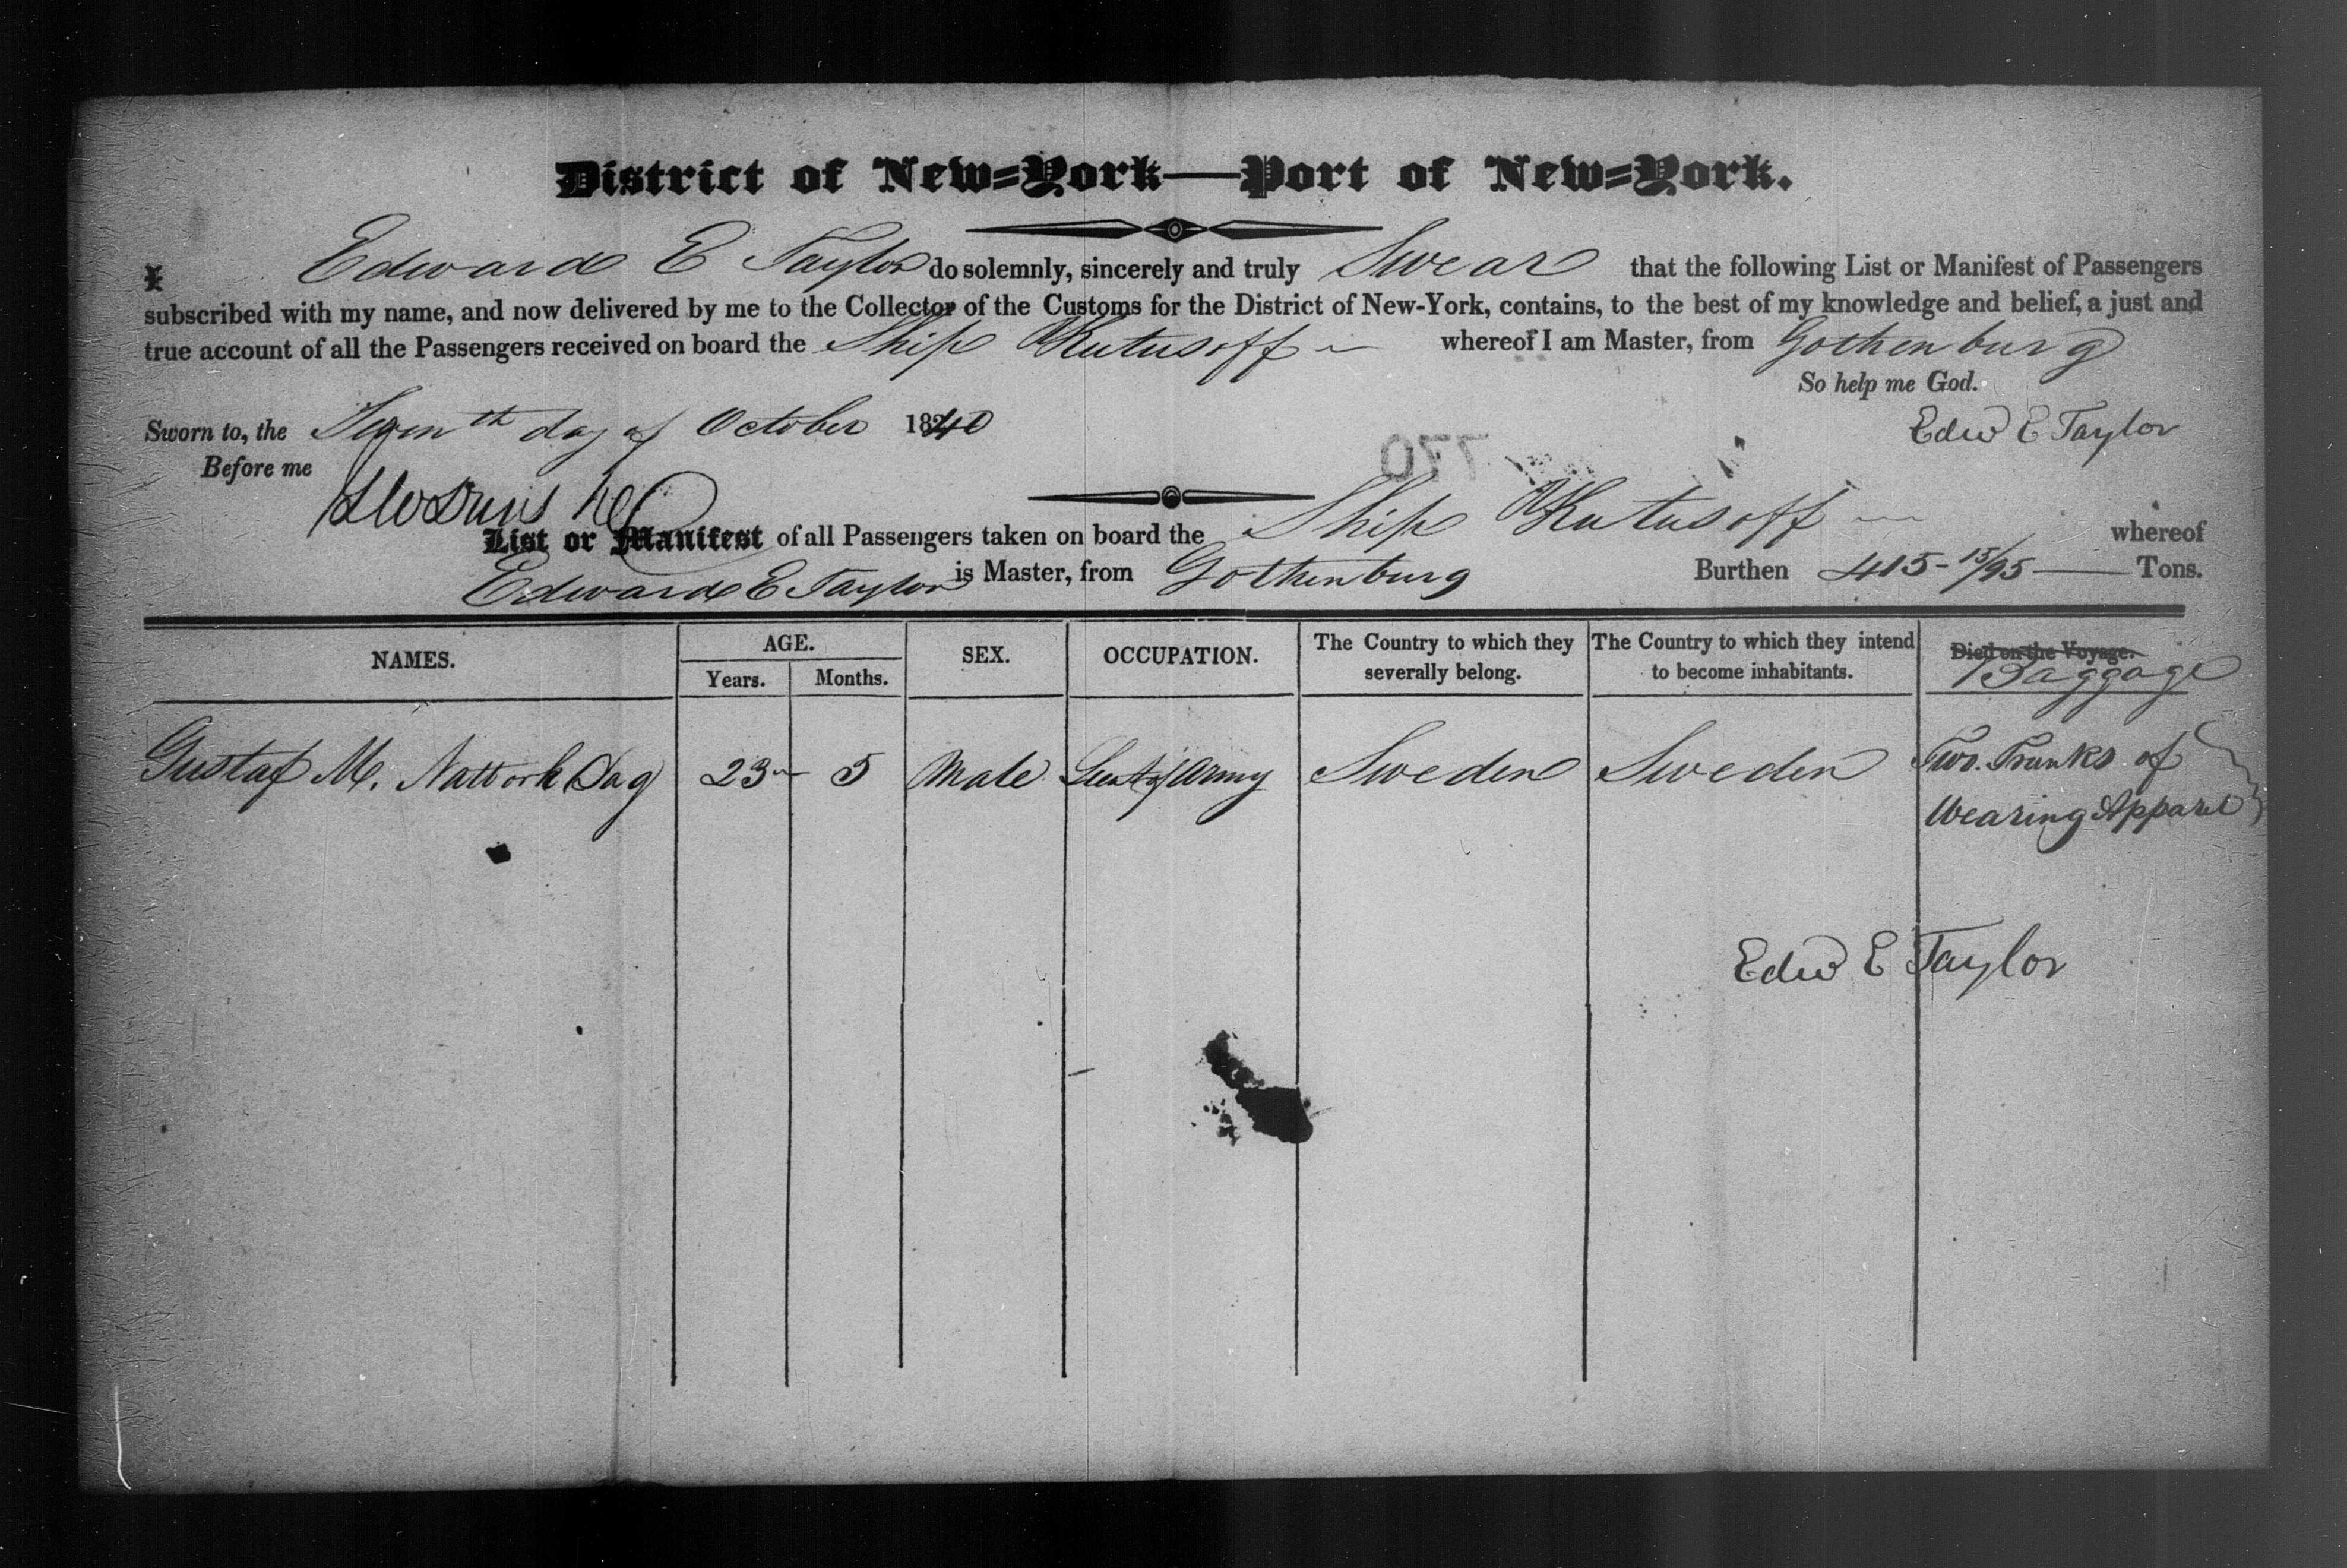 District of New=York—Port of New=York.
I Edward E Taylor do solemnly, sincerely and truly Swear that the following List or Manifest of Passengers
subscribed with my name, and now delivered by me to the Collector of the Customs for the District of New-York, contains, to the best of my knowledge and belief, a just and
true account of all the Passengers received on board the Ship Kutusoff whereof I am Master, from Gothenburg
So help me God.
Sworn to, the Seventh day of October 1840 Edw E Taylor
Before me
770
List or Manifest of all Passengers taken on board the Ship Kutusoff whereof
Edward E Taylor is Master, from Gothenburg Burthen 415-15/95 Tons.
NAMES. AGE. Years. Months. SEX. OCCUPATION. The Country to which they severally belong. The Country to which they intend to become inhabitants. Died on the Voyage. Baggage
Gustaf M. Nattorh Dag 23 5 Male Lieut of Army Sweden Sweden Two Trunks of
Wearing Apparel
Edw E Taylor